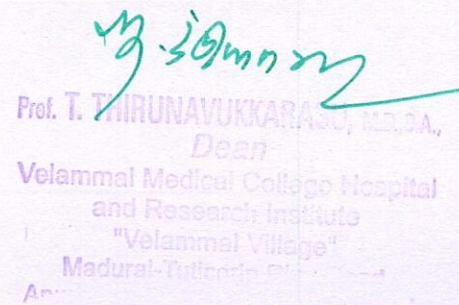 Prof. T. THIRUNAVUKKARASU, M.D., D.A.,
Dean
Velammal Medical College Hospital
and Research Institute
"Velammal Village"
Madurai-Tuticorin